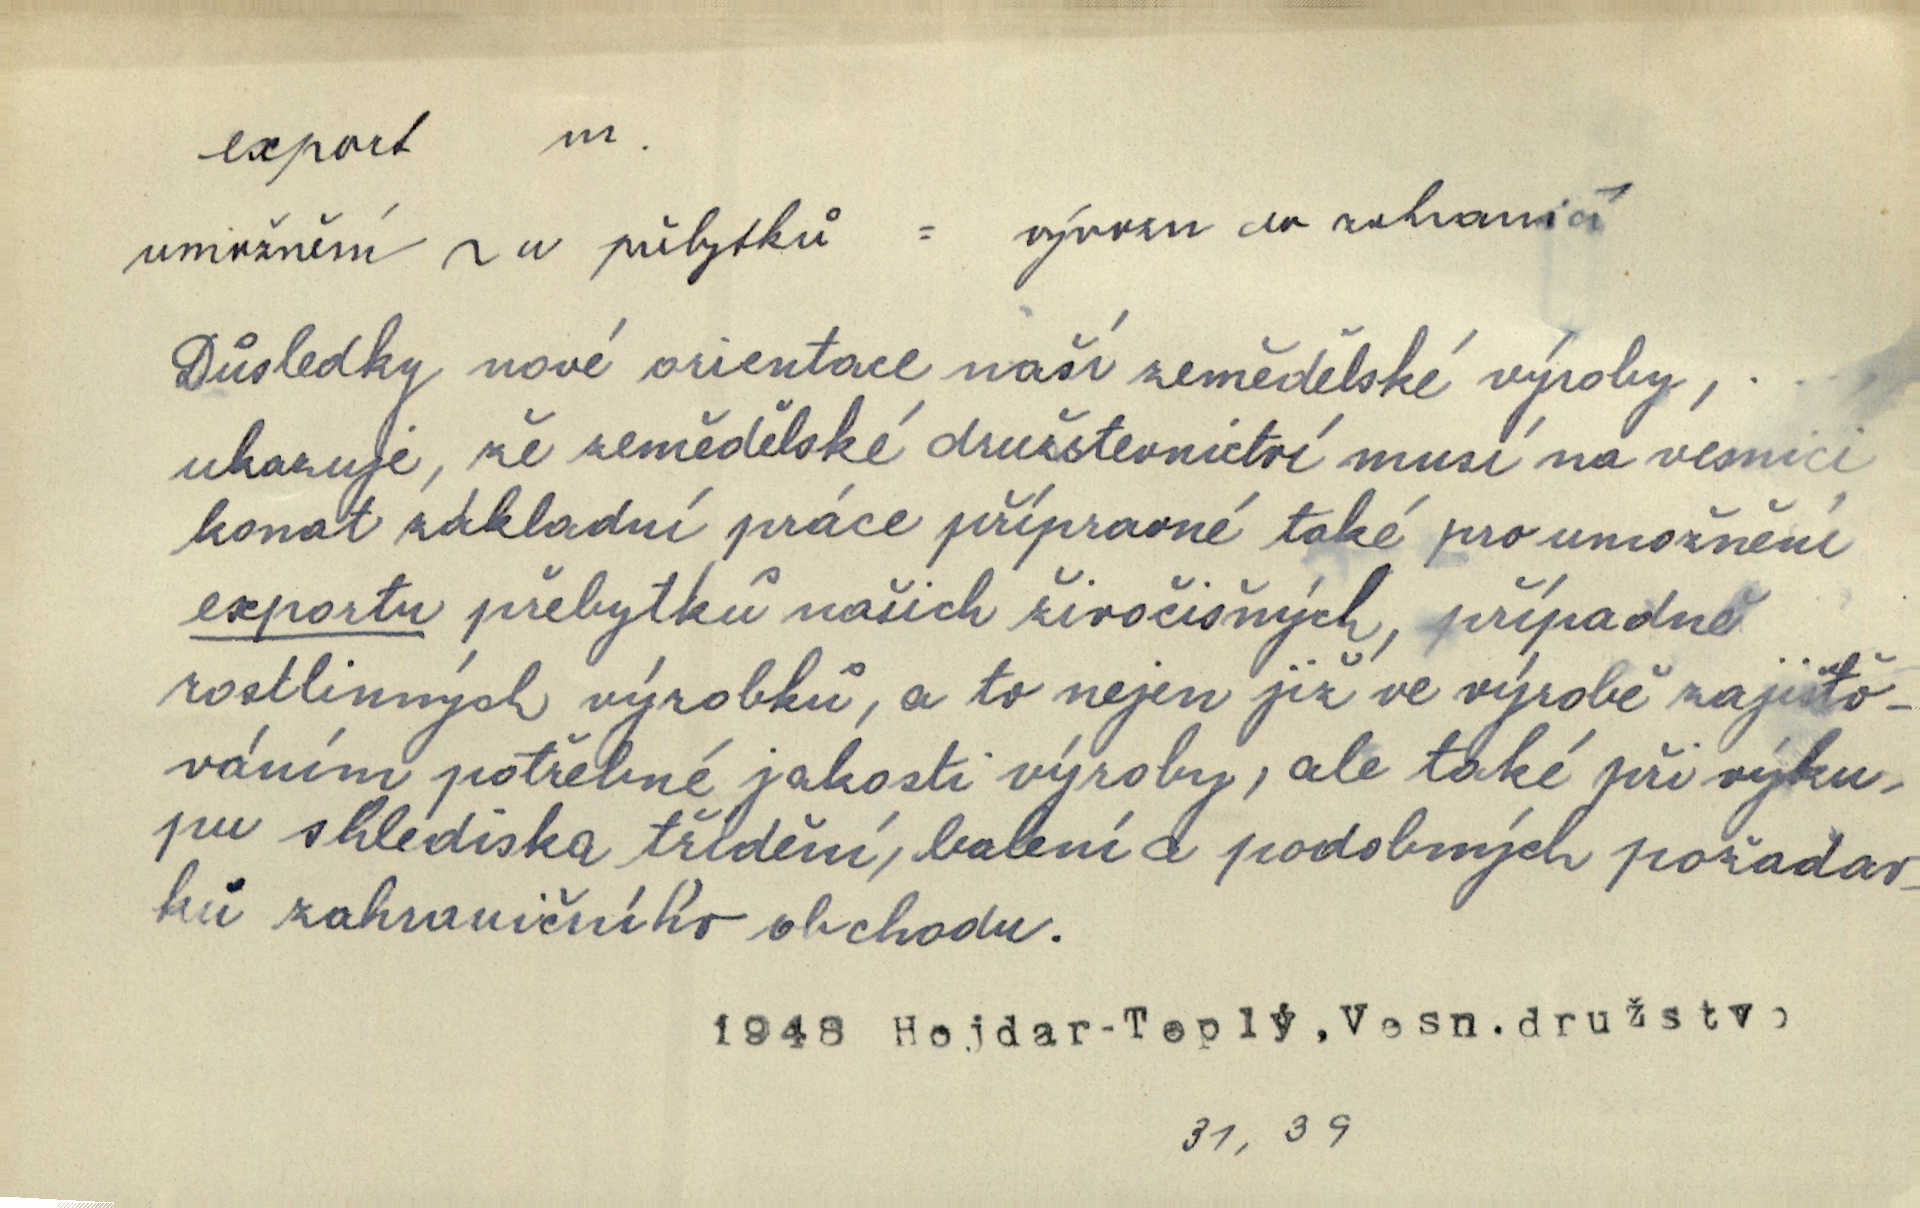 export m.
umožnění ~u přebytků = vývozu do zahraničí
Důsledky nové orientace naší zemědělské výroby, . . .
ukazuje, že zemědělské družstevnictví musí na vesnici
konat základní práce přípravné také pro umožnění
exportu přebytků našich živočišných, případně
rostlinných výrobků, a to nejen již ve výrobě zajišťo-
váním potřebné jakosti výroby, ale také při výku-
pu s hlediska třídění, balení a podobných požadav-
ků zahraničního obchodu.
1948 Hojdar-Teplý,Vesn.družstvo
31, 39